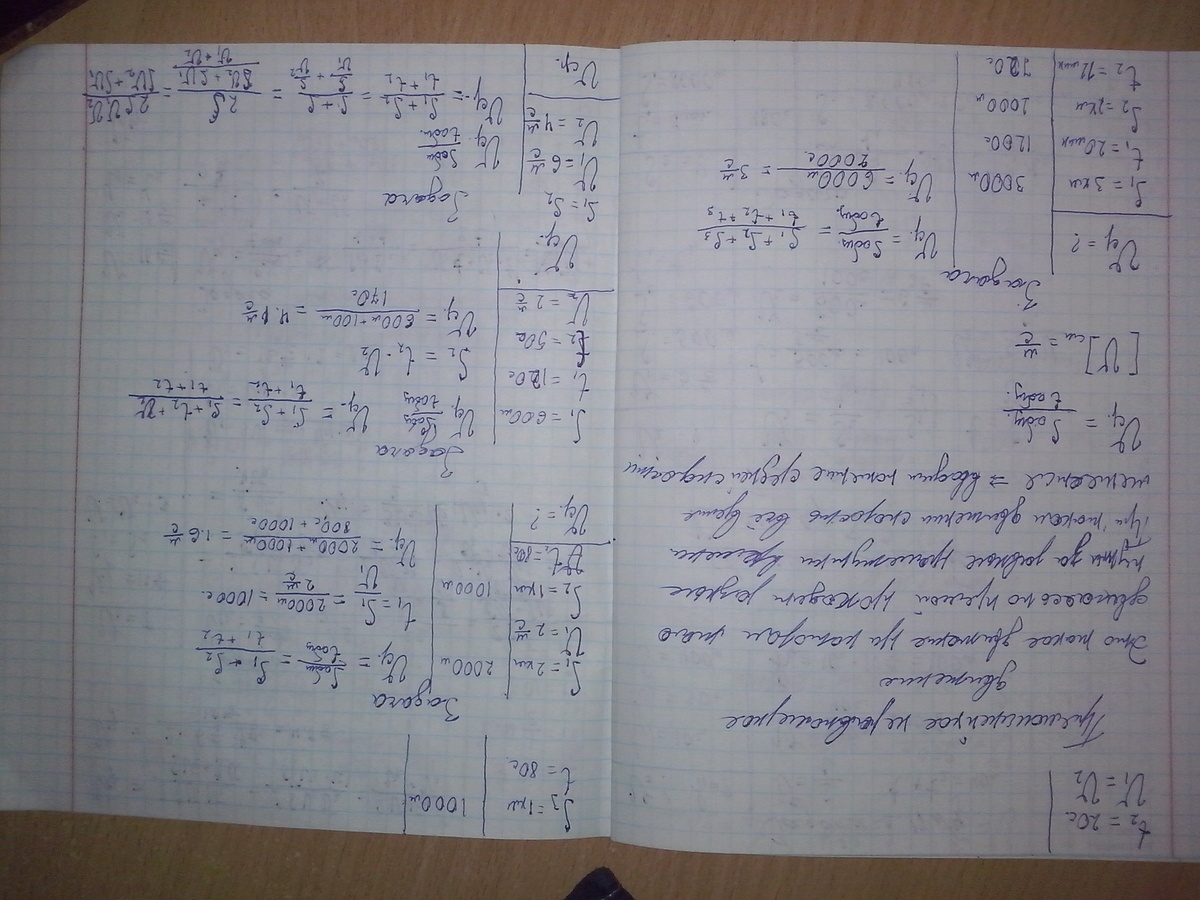 t₂ = 20с
V₁ = V₂
Прямолинейное неравномерное
движение
Это такое движение при котором тело
двигаясь по прямой проходит разные
пути за равные промежутки времени
При таком движении скорость всё время
меняется ⇒ вводим понятие средней скорости
Vср. = Sобщ. / tобщ.
[V]си = м/с
Задача
Vср = ?
S₁ = 3км 3000м
t₁ = 20мин 1200с
S₂ = 2км 2000м
t₂ = 12мин 720с
Vср. = Sобщ. / tобщ. = S₁ + S₂ + S₃ / t₁ + t₂ + t₃
Vср. = 6000м / 2000с = 3 м/с
S₃ = 1км 1000м
t = 80с
Задача
S₁ = 2км 2000м
V₁ = 2 м/с
S₂ = 1км 1000м
t₂ = 800с
Vср = ?
Vср. = Sобщ / tобщ = S₁ + S₂ / t₁ + t₂
t₁ = S₁ / V₁ = 2000м / 2 м/с = 1000с
Vср. = 2000м + 1000м / 800с + 1000с = 1.6 м/с
Задача
S₁ = 600м
t₁ = 120с
t₂ = 50с
V₂ = 2 м/с
Vср.
Vср. Sобщ / tобщ Vср. = S₁ + S₂ / t₁ + t₂ = S₁ + t₂ · V₂ / t₁ + t₂
S₂ = t₂ · V₂
Vср. = 600м + 100м / 170с = 4.1 м/с
Задача
S₁ = S₂
V₁ = 6 м/с
V₂ = 4 м/с
Vср.
Vср. Sобщ / tобщ.
Vср. = S₁ + S₂ / t₁ + t₂ = S + S / S/V₁ + S/V₂ = 2S / SV₂ + SV₁ / V₁ + V₂ = 2SV₁V₂ / SV₂ + SV₁